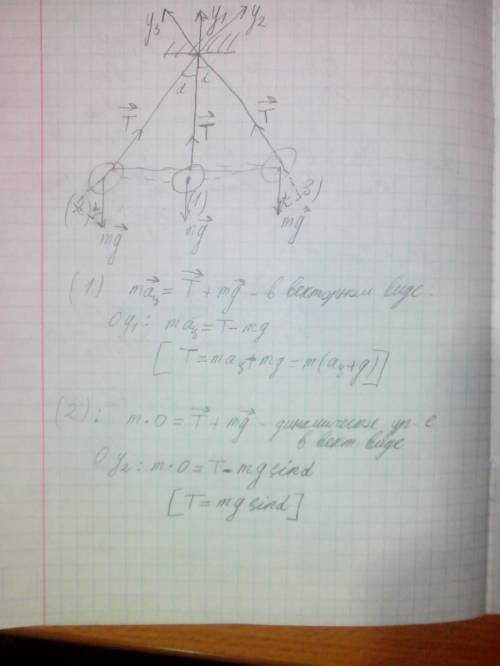 y₃ y₁ y₂
α α
T⃗ T⃗ T⃗
(1) 3)
mg⃗ mg⃗ mg⃗
(1) ma⃗ц = T⃗ + mg⃗ – в векторном виде.
Oy₁: maц = T – mg
[T = maц + mg = m(aц + g)]
(2): m·0 = T⃗ + mg⃗ – динамическое ур-е
в вект виде
Oy₂: m·0 = T – mg sinα
[T = mg sinα]